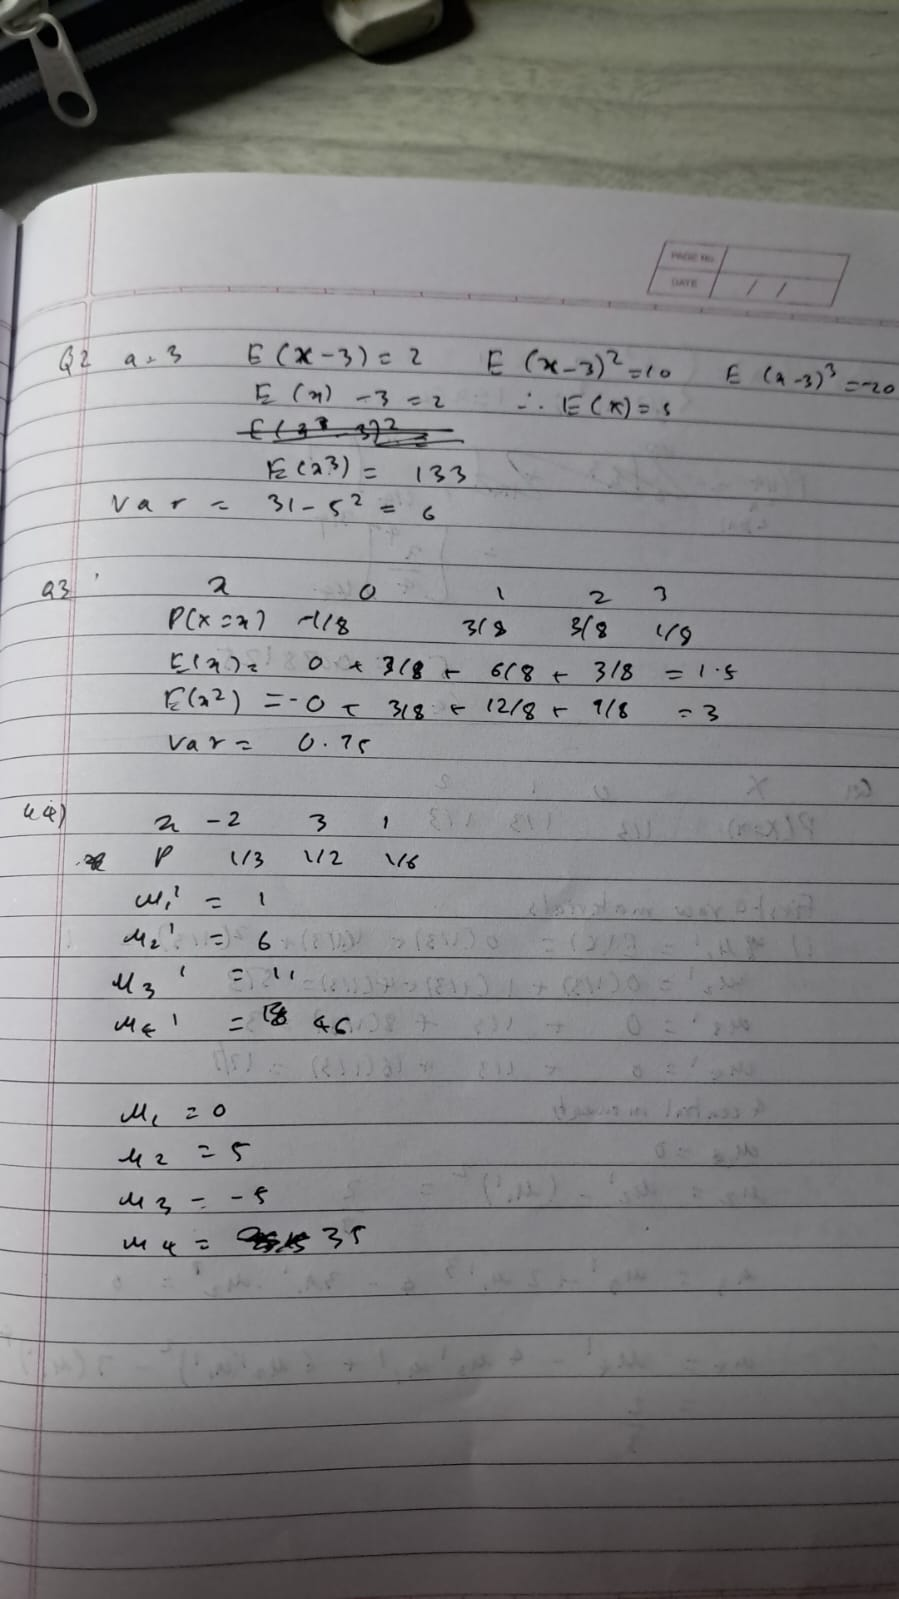 PAGE No.
DATE / /
Q2 a = 3 E (x - 3) = 2 E (x - 3)² = 10 E (x - 3)³ = -20
E (x) - 3 = 2 ∴ E (x) = 5
E (x³) = 133
Var = 31 - 5² = 6
Q3 x 0 1 2 3
P(X = x) 1/8 3/8 3/8 1/8
E(x) = 0 + 3/8 + 6/8 + 3/8 = 1.5
E(x²) = 0 + 3/8 + 12/8 + 9/8 = 3
Var = 0.75
x -2 3 1
P 1/3 1/2 1/6
μ₁' = 1
μ₂' = 6
μ₃' = 11
μ₄' = 46
μ₁ = 0
μ₂ = 5
μ₃ = -5
μ₄ = 35